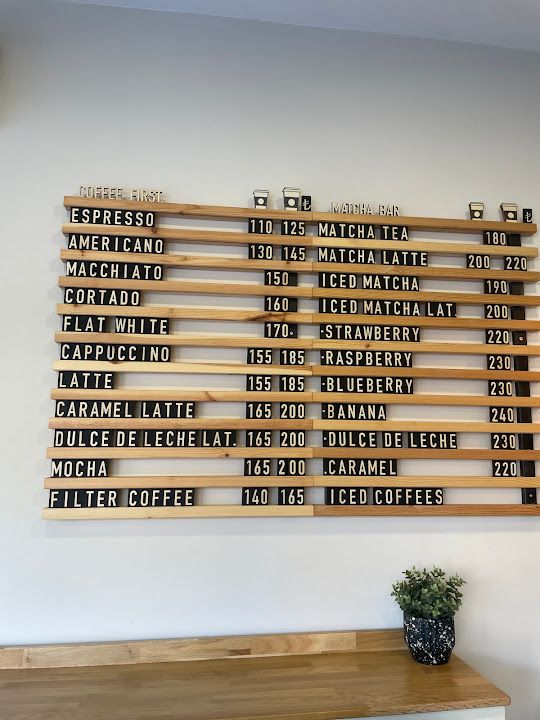 COFFEE FIRST
ESPRESSO 110 125
AMERICANO 130 145
MACCHIATO 150
CORTADO 160
FLAT WHITE 170
CAPPUCCINO 155 185
LATTE 155 185
CARAMEL LATTE 165 200
DULCE DE LECHE LAT. 165 200
MOCHA 165 200
FILTER COFFEE 140 165
₺
MATCHA BAR
₺
MATCHA TEA 180
MATCHA LATTE 200 220
ICED MATCHA 190
ICED MATCHA LAT. 200
·STRAWBERRY 220
·RASPBERRY 230
·BLUEBERRY 230
·BANANA 240
·DULCE DE LECHE 230
.CARAMEL 220
ICED COFFEES